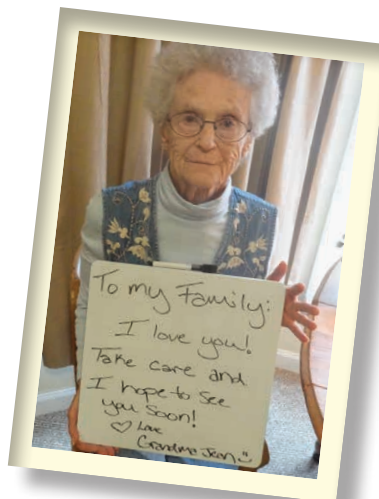 To my Family:
I love you!
Take care and
I hope to see
you soon!
♡ Love
Grandma Jean ☺